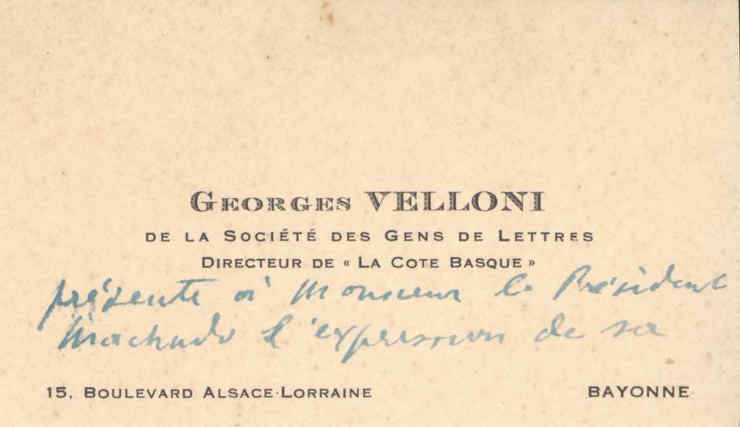 Georges VELLONI
DE LA SOCIÉTÉ DES GENS DE LETTRES
DIRECTEUR DE « LA COTE BASQUE »
présente à Monsieur le Président
Machado l'expression de sa
15, BOULEVARD ALSACE-LORRAINE BAYONNE